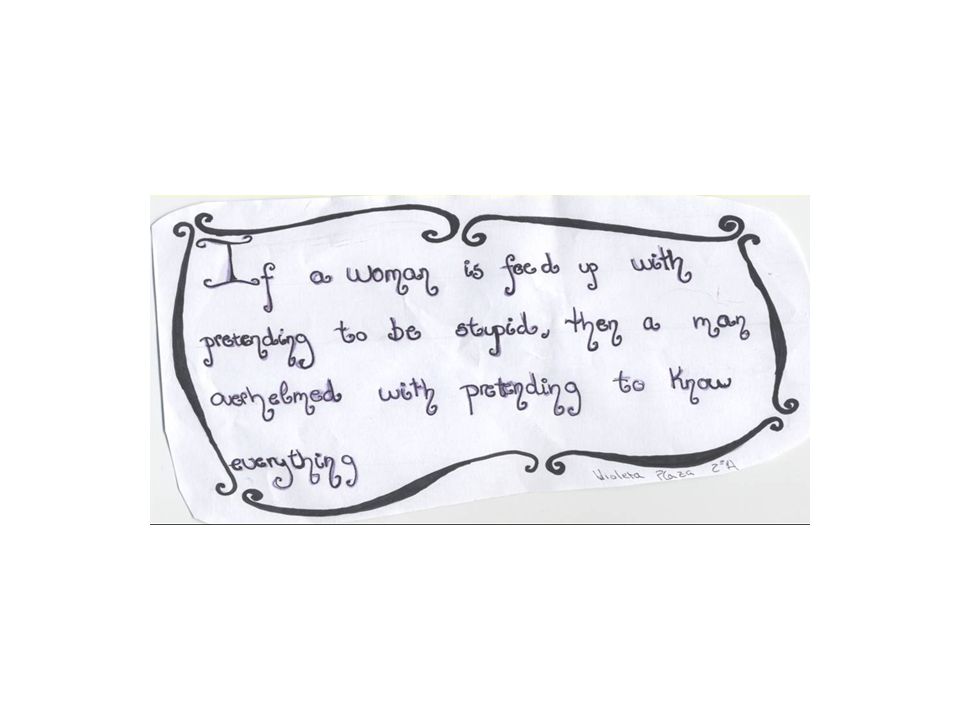 If a woman is feed up with
pretending to be stupid, then a man
overhelmed with pretending to know
everything
Violeta Plaza 2ºA